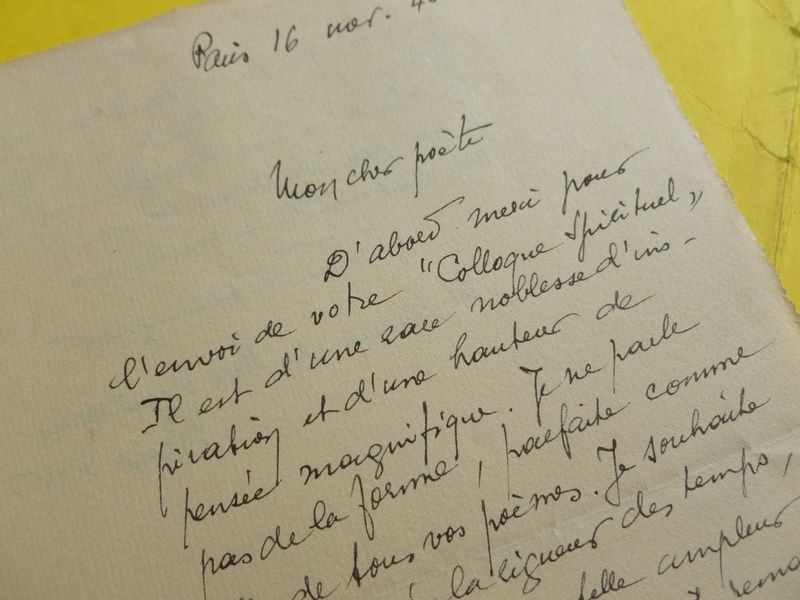 Paris 16 nov. 4
Mon cher poète
D'abord merci pour
l'envoi de votre "Colloque Spirituel"
Il est d'une rare noblesse d'ins-
piration et d'une hauteur de
pensée magnifique. Je ne parle
pas de la forme, parfaite comme
de tous vos poèmes. Je souhaite
la rigueur des temps,
telle ampleur